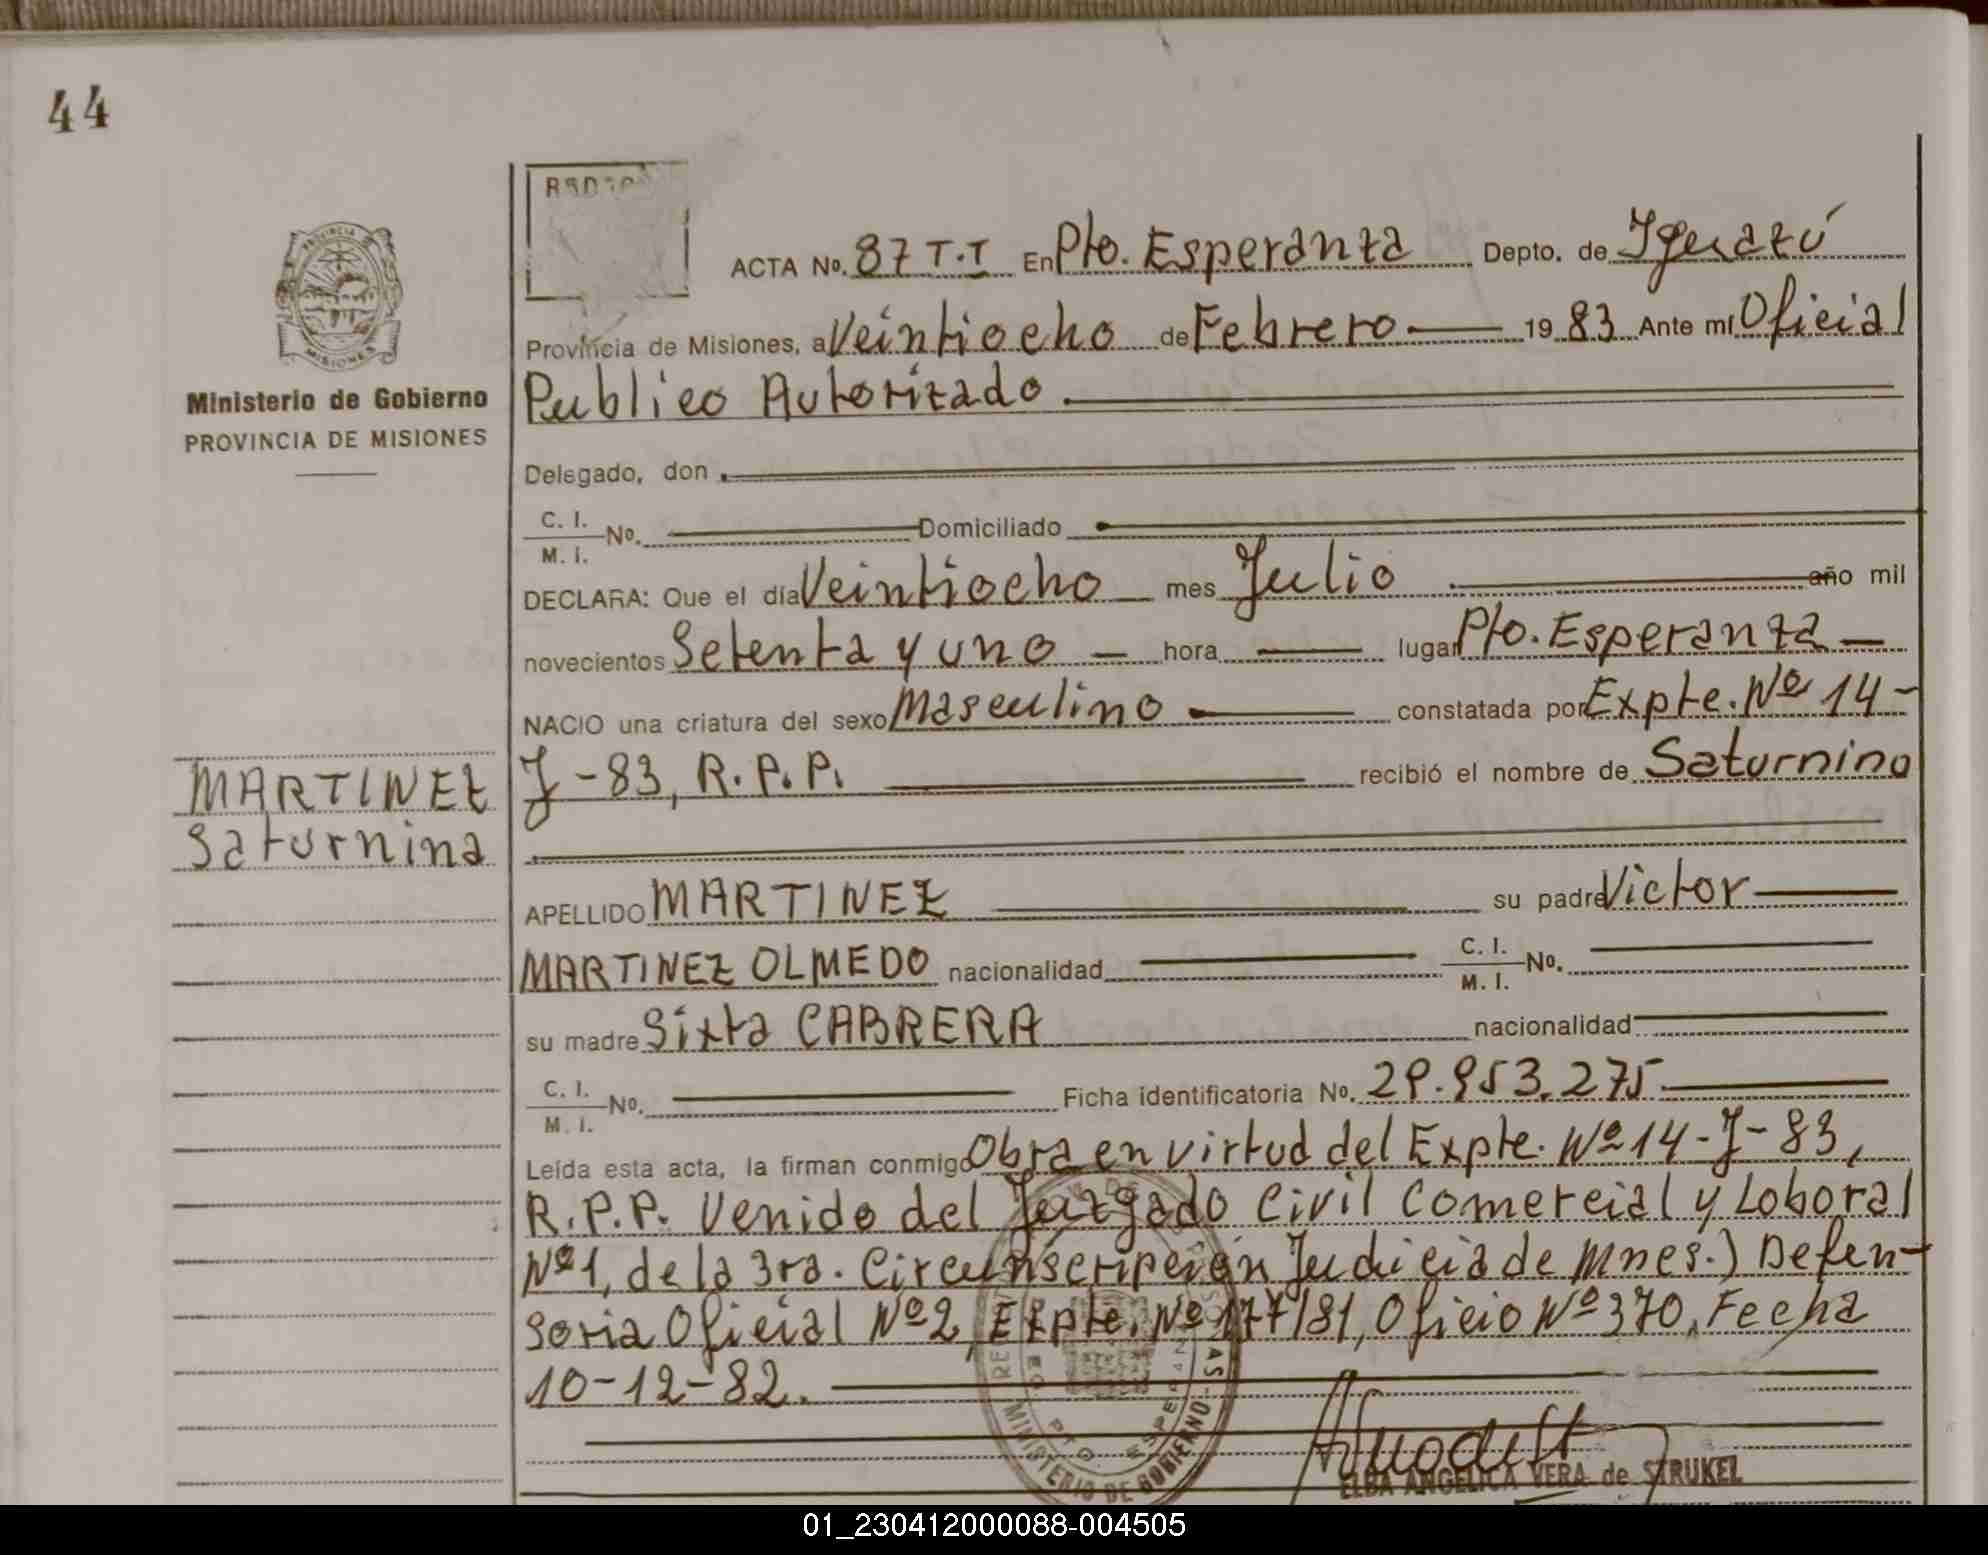 44
PROVINCIA DE
MISIONES
Ministerio de Gobierno
PROVINCIA DE MISIONES
ACTA No. 87 T.T En Pto. Esperanza Depto. de Iguazú
Provincia de Misiones, a Veintiocho de Febrero 19 83 Ante mí Oficial
Publico Autorizado.
Delegado, don
C. I.
M. I. No. Domiciliado
DECLARA: Que el día Veintiocho mes Julio año mil
novecientos Setenta y uno hora lugar Pto. Esperanza
NACIO una criatura del sexo Masculino constatada por Expte. Nº 14-
J-83, R.P.P. recibió el nombre de Saturnino
MARTINEZ
Saturnina
APELLIDO MARTINEZ su padre Victor
MARTINEZ OLMEDO nacionalidad C. I.
M. I. No.
su madre Sixta CABRERA nacionalidad
C. I.
M. I. No. Ficha identificatoria No. 29.953.275
Leída esta acta, la firman conmigo Obra en virtud del Expte. Nº 14-J-83,
R.P.P. Venido del Juzgado Civil Comercial y Loboral
Nº1, de la 3ra. Circunscripción Judicia de Mnes.) Defen-
soria Oficial Nº2, Expte. Nº 177/81, Oficio Nº 370, Fecha
10-12-82.
MINISTERIO DE GOBIERNO
ELBA ANGELICA VERA de STRUKEL
01_230412000088-004505